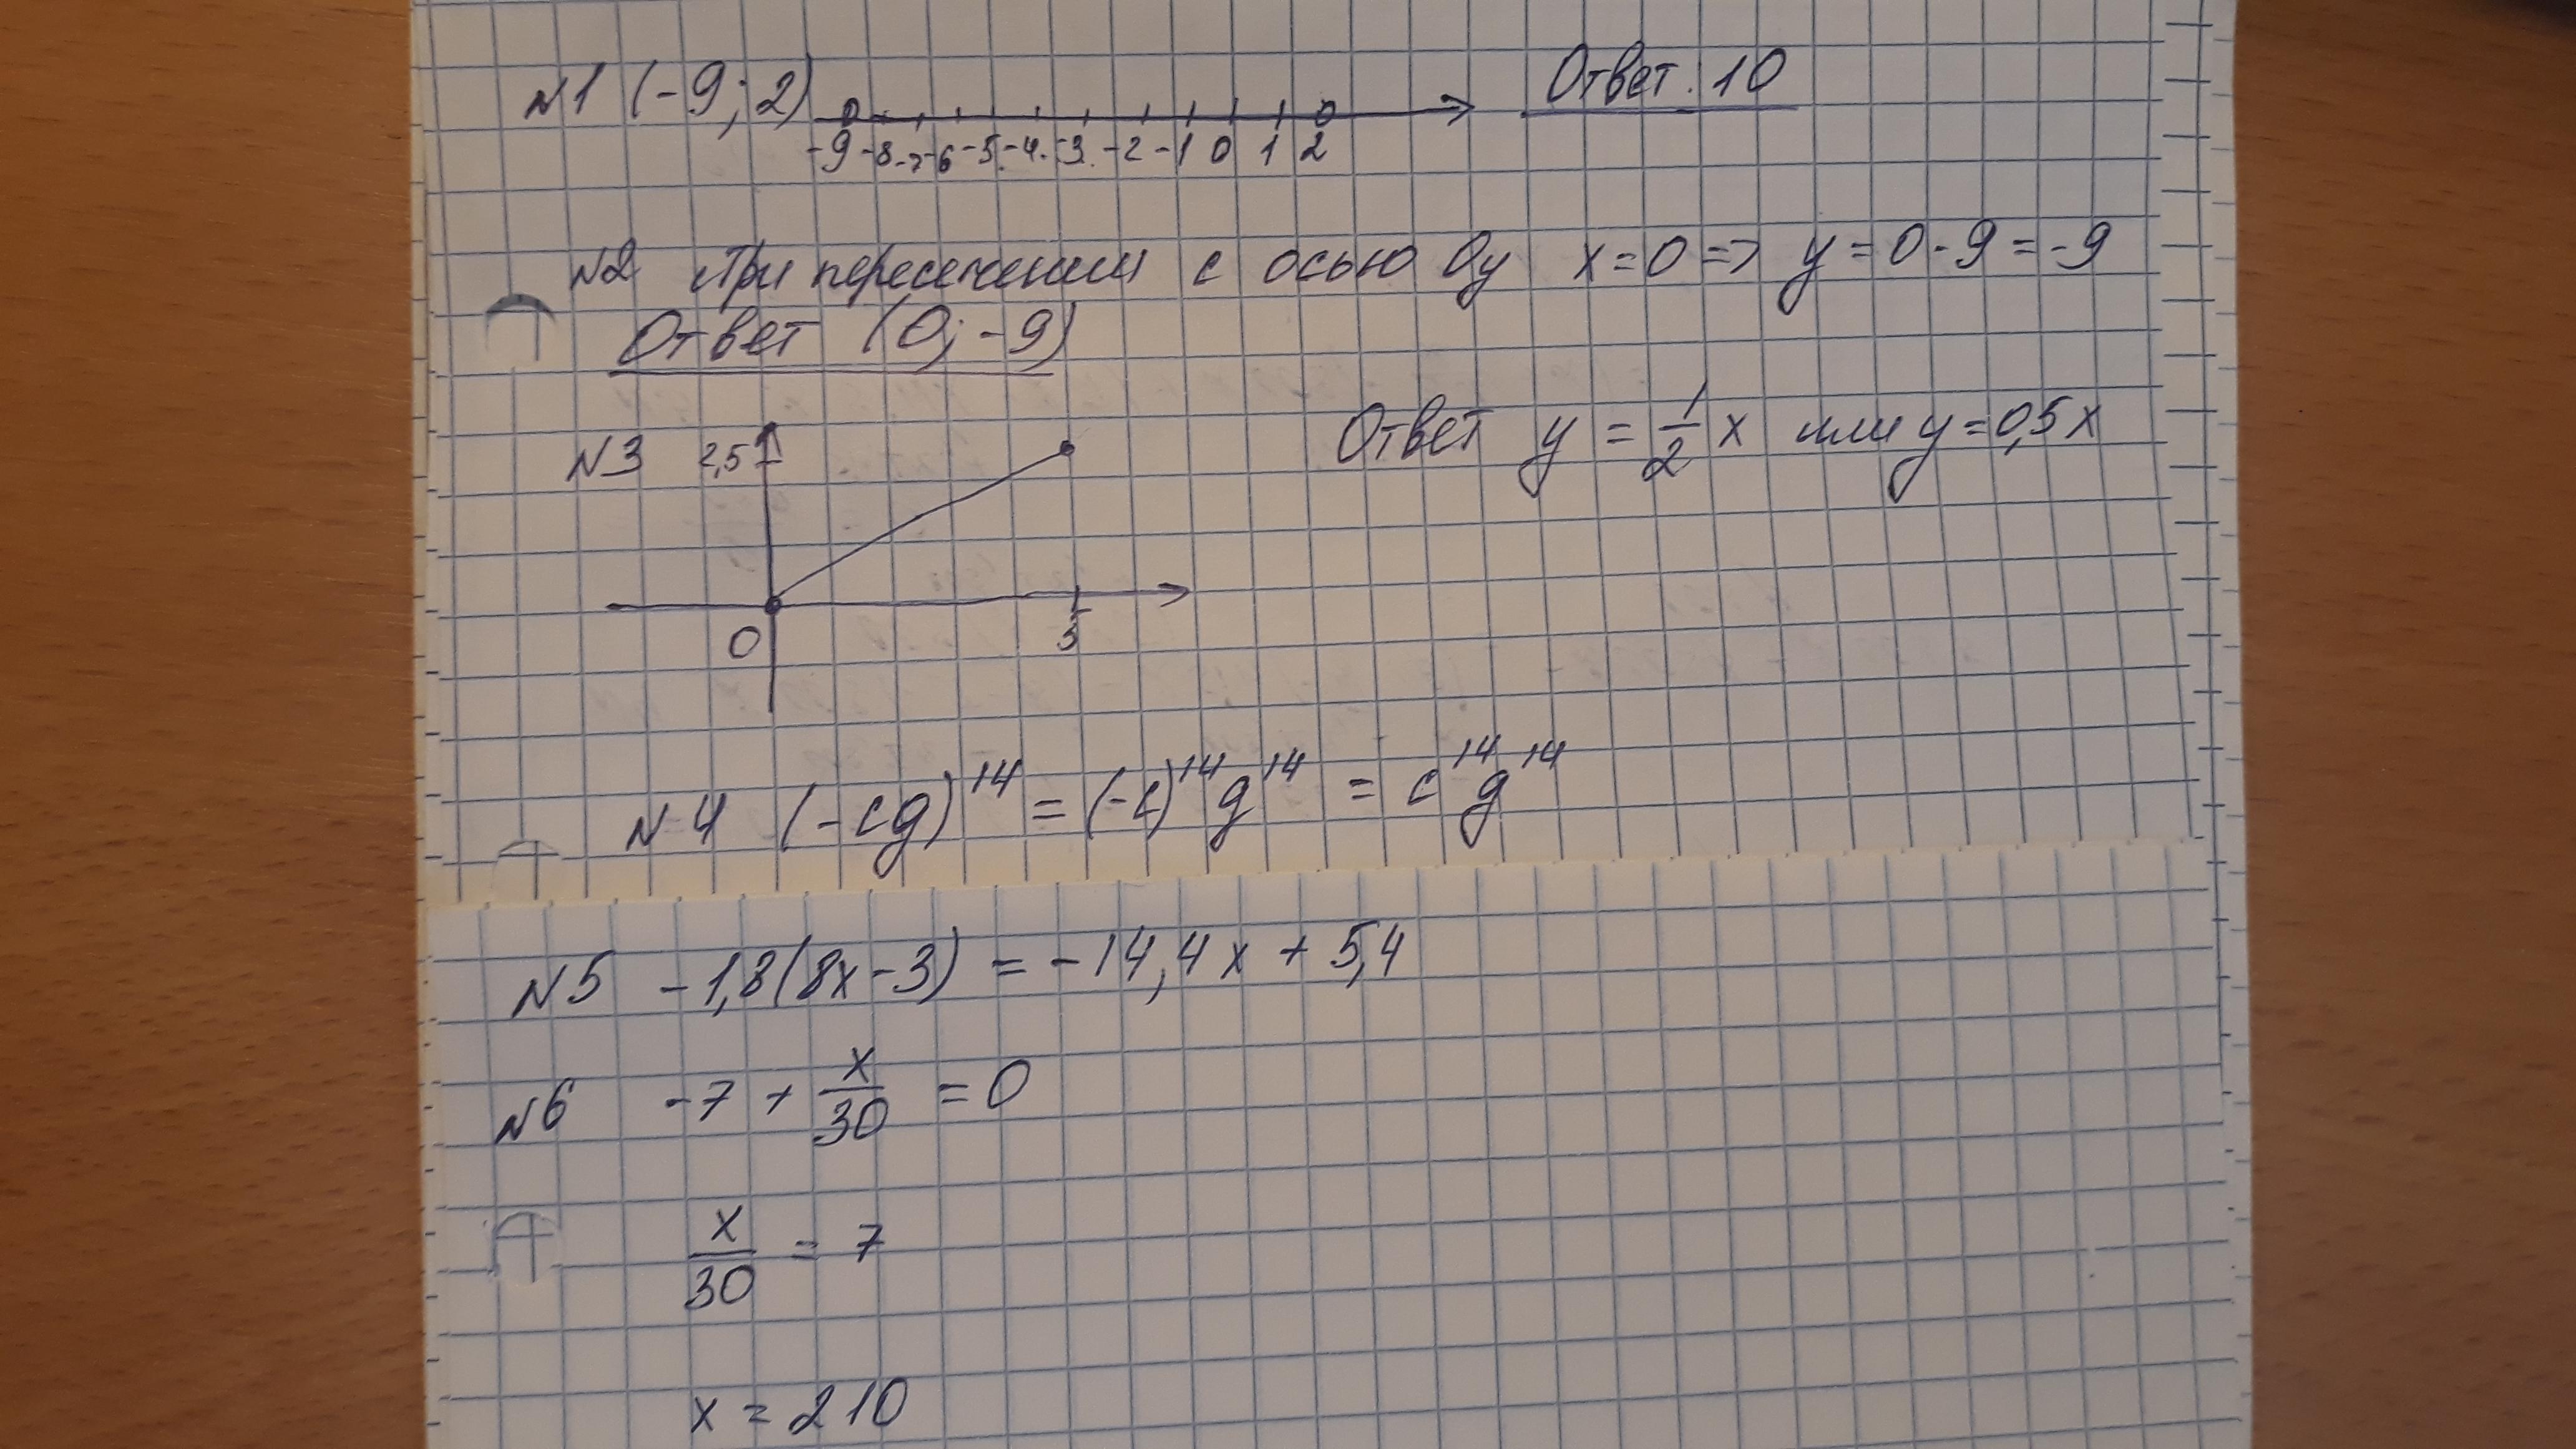 №1 (-9; 2) Ответ. 10
-9 -8 -7 -6 -5 -4 -3 -2 -1 0 1 2
№2 При пересечении с осью Oy x=0 => y = 0-9 = -9
Ответ (0; -9)
№3 2,5 Ответ y = 1/2 x или y=0,5x
0 5
№4 (-cg)^14 = (-c)^14 g^14 = c^14 g^14
№5 -1,8(8x-3) = -14,4x + 5,4
№6 -7 + x/30 = 0
x/30 = 7
x = 210